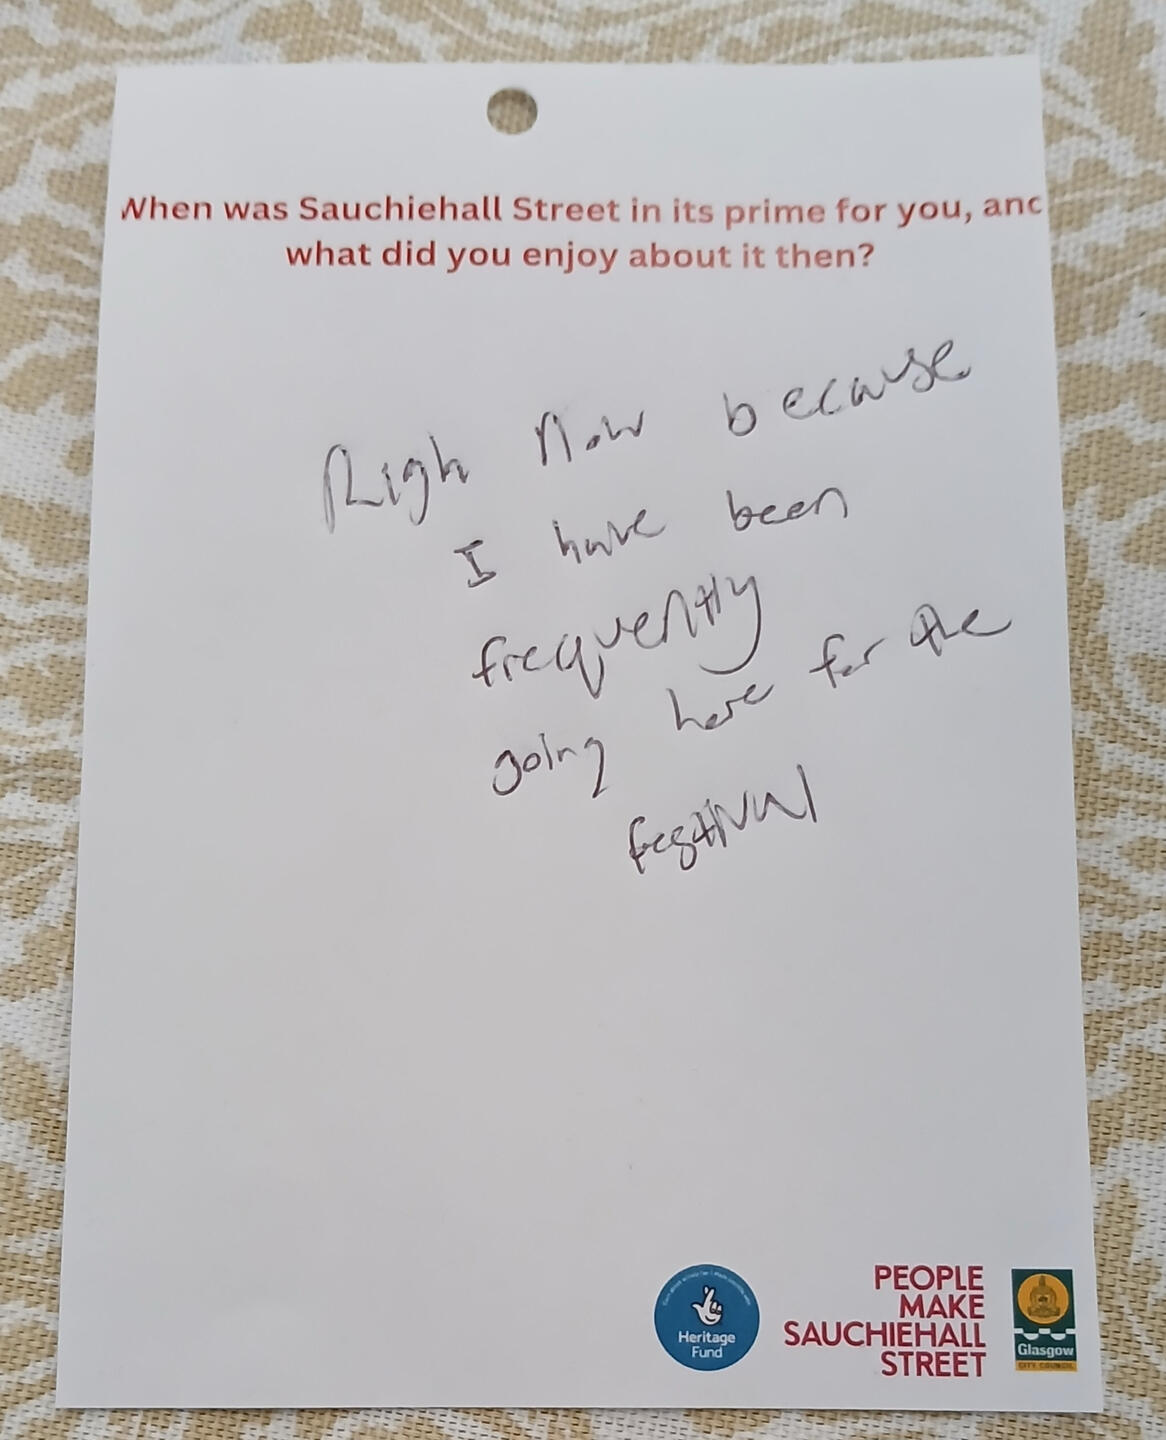 When was Sauchiehall Street in its prime for you, and
what did you enjoy about it then?
Righ Now because
I have been
frequently
going here for the
festival
Heritage
Fund
PEOPLE
MAKE
SAUCHIEHALL
STREET
Glasgow
CITY COUNCIL